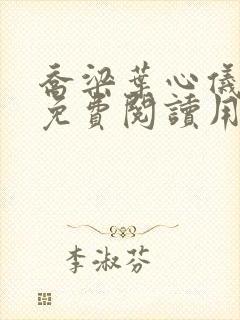 喬梁葉心儀
免費閱讀用
李淑芬